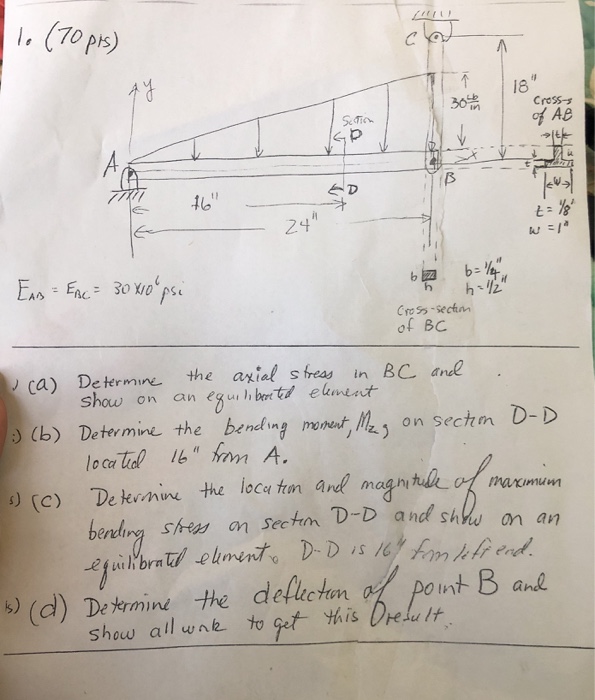 1. (70 pts)
C
y
30 lb/in
18"
Cross-s
of AB
t
Section
D
A
x
B
t
w
D
16"
24"
t = 1/8"
w = 1"
b
h
b = 1/4"
h = 1/2"
E_AB = E_BC = 30 x10^6 psi
Cross-section
of BC
(a) Determine the axial stress in BC and
show on an equilibrated element
(b) Determine the bending moment, Mz, on section D-D
located 16" from A.
(c) Determine the location and magnitude of maximum
bending stress on section D-D and show on an
equilibrated element. D-D is 16" from left end.
(d) Determine the deflection of point B and
show all work to get this result.